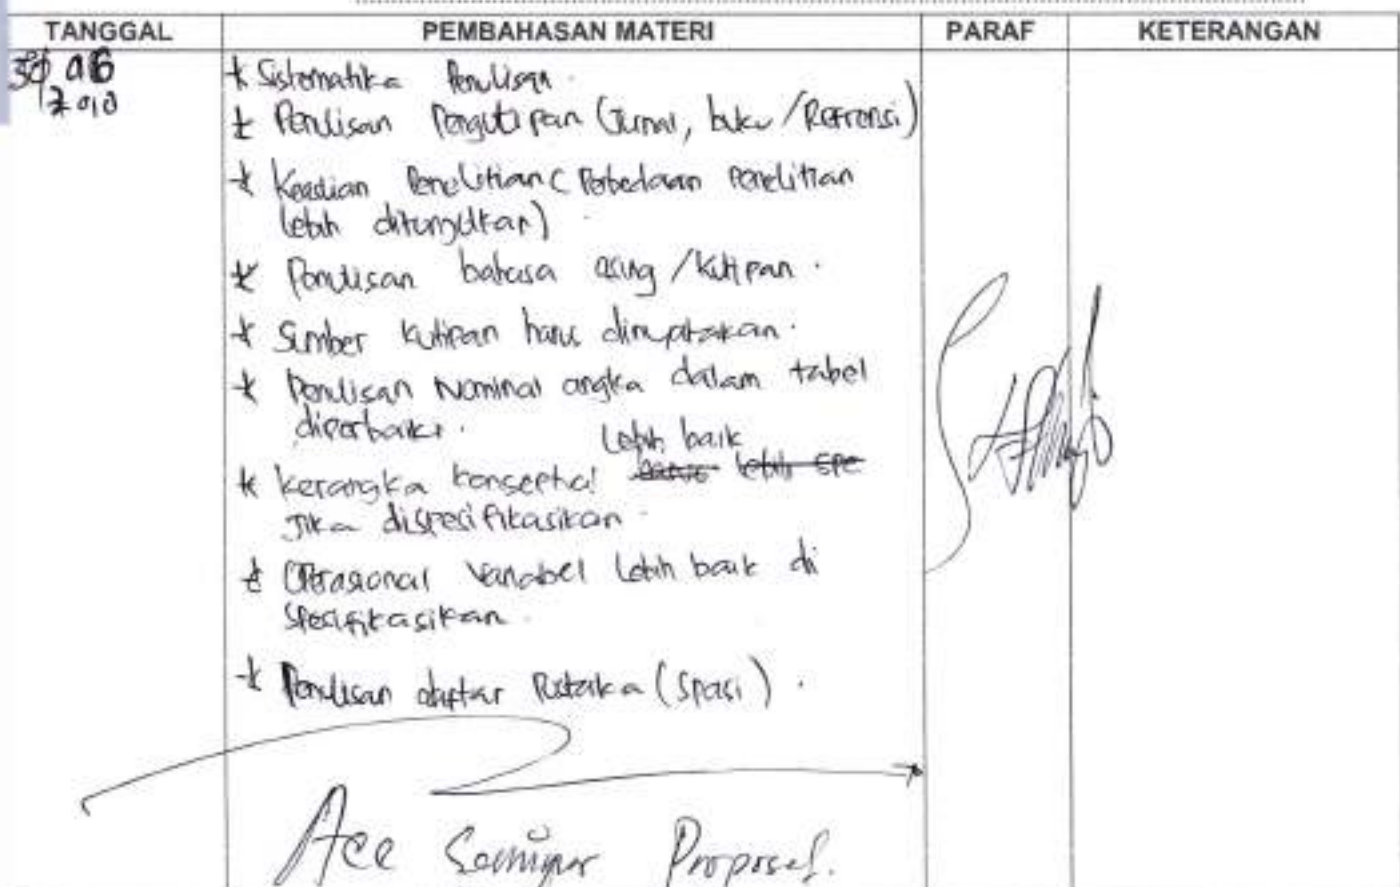 TANGGAL PEMBAHASAN MATERI PARAF KETERANGAN
06
* Sistematika Penulisan.
* Penulisan Pengutipan (Jurnal, buku/Refrensi)
* Keaslian Penelitian (Perbedaan penelitian
lebih ditunjukkan)
* Penulisan bahasa asing/Kutipan.
* Sumber kutipan harus dinyatakan.
* Penulisan Nominal angka dalam tabel
diperbaiki.
lebih baik
* Kerangka konseptual lebih spe
Jika dispesifikasikan.
* Operasional Variabel Lebih baik di
Spesifikasikan.
* Penulisan daftar Pustaka (Spasi).
Acc Seminar Proposal.